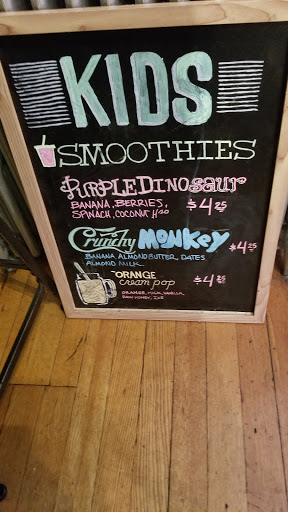 KIDS
SMOOTHIES
PURPLE DINOSaUR
BANANA, BERRIES,
SPINACH, COCONUT H2O $4.25
Crunchy MONKEY $4.25
BANANA, ALMOND BUTTER, DATES
ALMOND MILK
ORANGE
cream pop $4.25
ORANGE, MILK, VANILLA
RAW HONEY, ICE